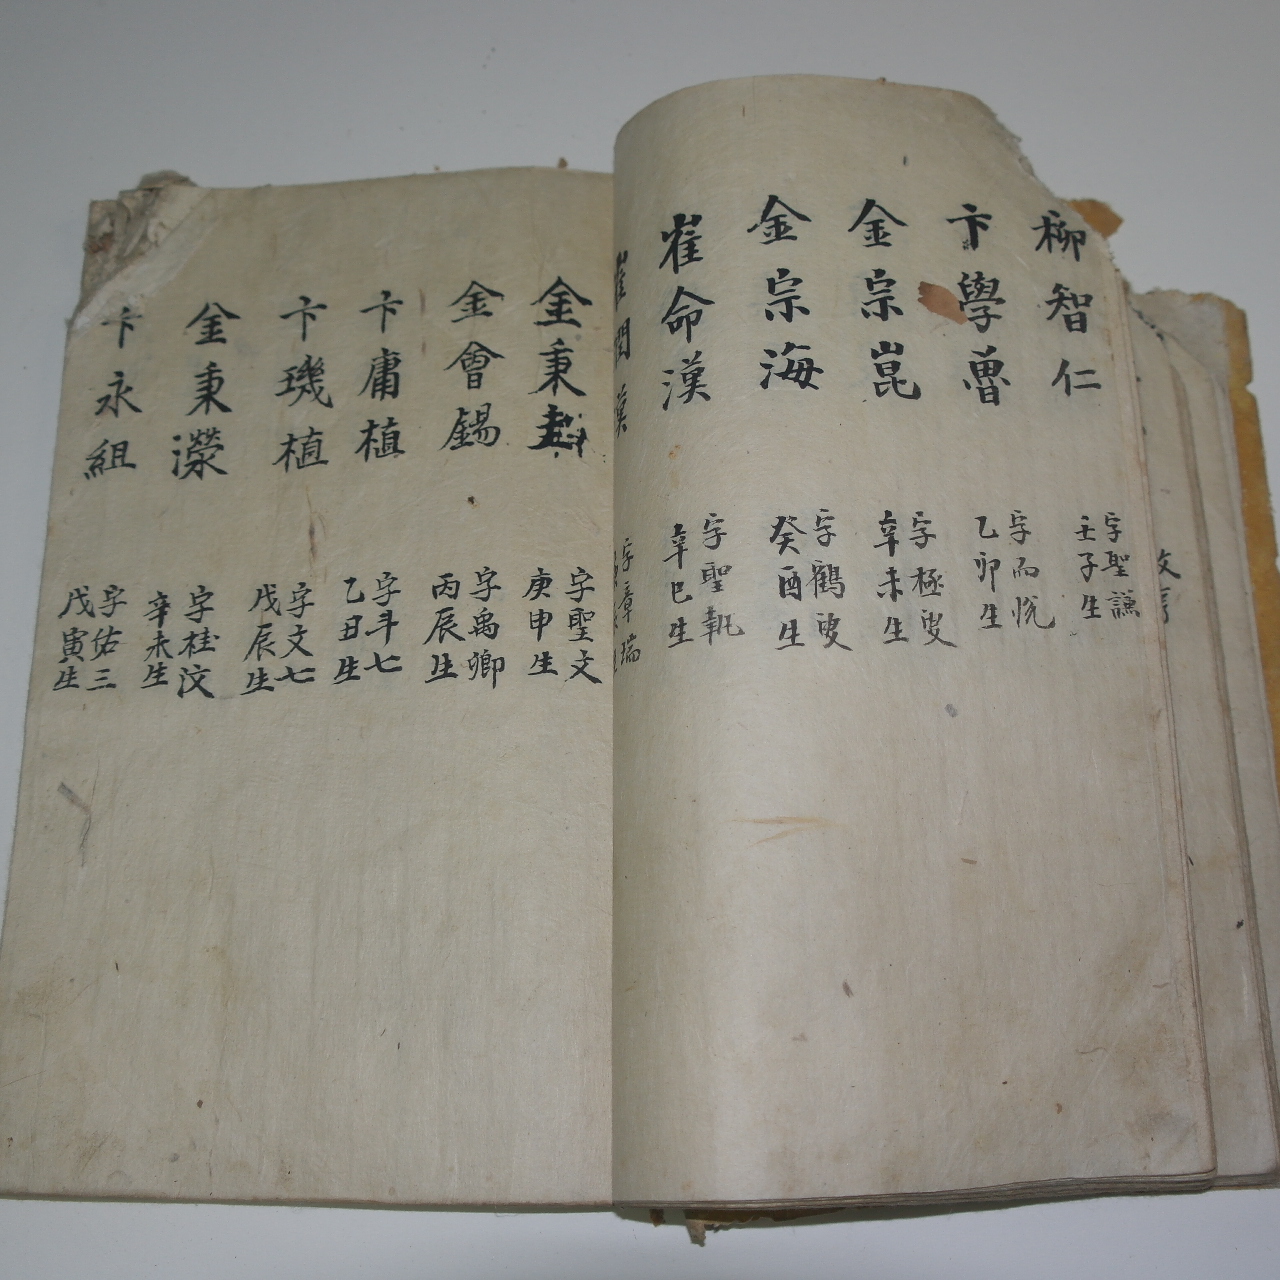 柳智仁
字聖謙
壬子生
卞學魯
字而悅
乙卯生
金宗崑
字極叟
辛未生
金宗海
字鶴叟
癸酉生
崔命漢
字聖執
辛巳生
崔閏漢
字章瑞
金秉
字聖文
庚申生
金會錫
字禹卿
丙辰生
卞庸植
字斗七
乙丑生
卞璣植
字文七
戊辰生
金秉濚
字桂汶
辛未生
卞永組
字佑三
戊寅生